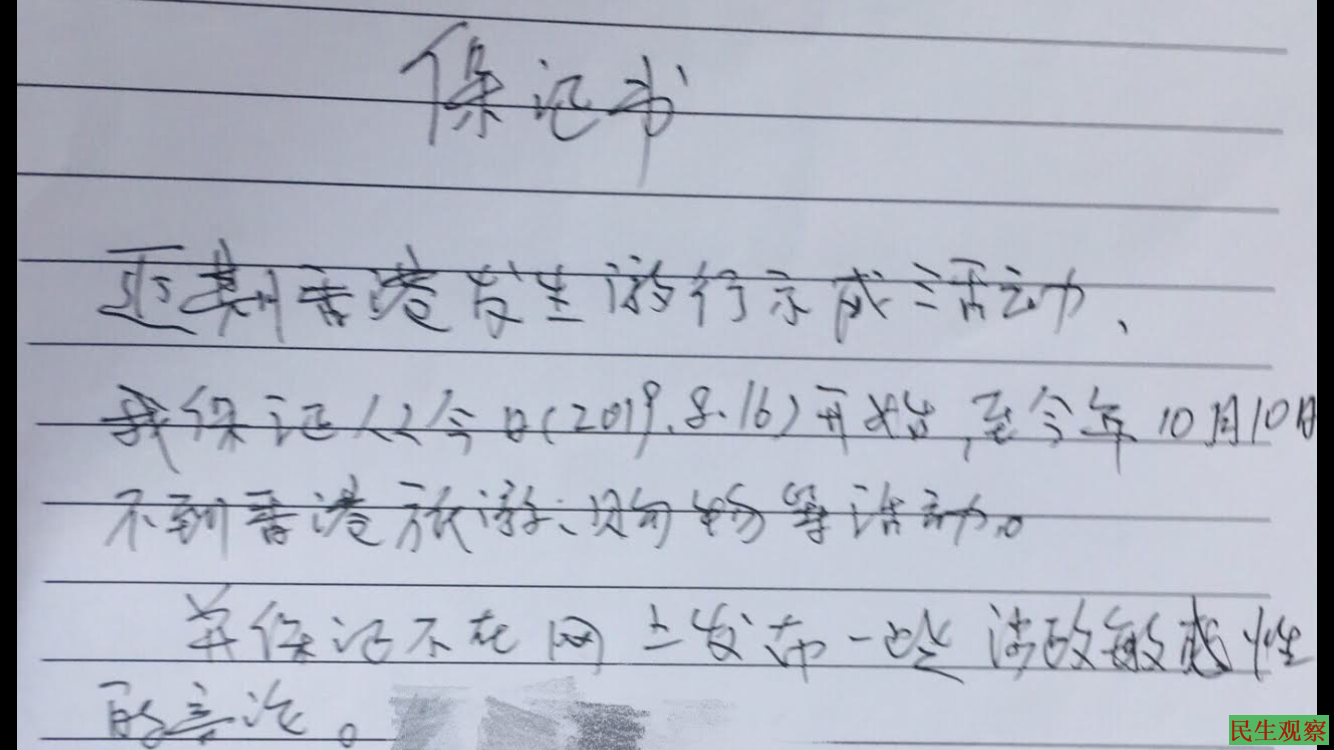 保证书
近期香港发生游行示威活动、
我保证从今日(2019.8.16)开始,至今年10月10日
不到香港旅游、购物等活动。
并保证不在网上发布一些涉政敏感性
的言论。
民生观察